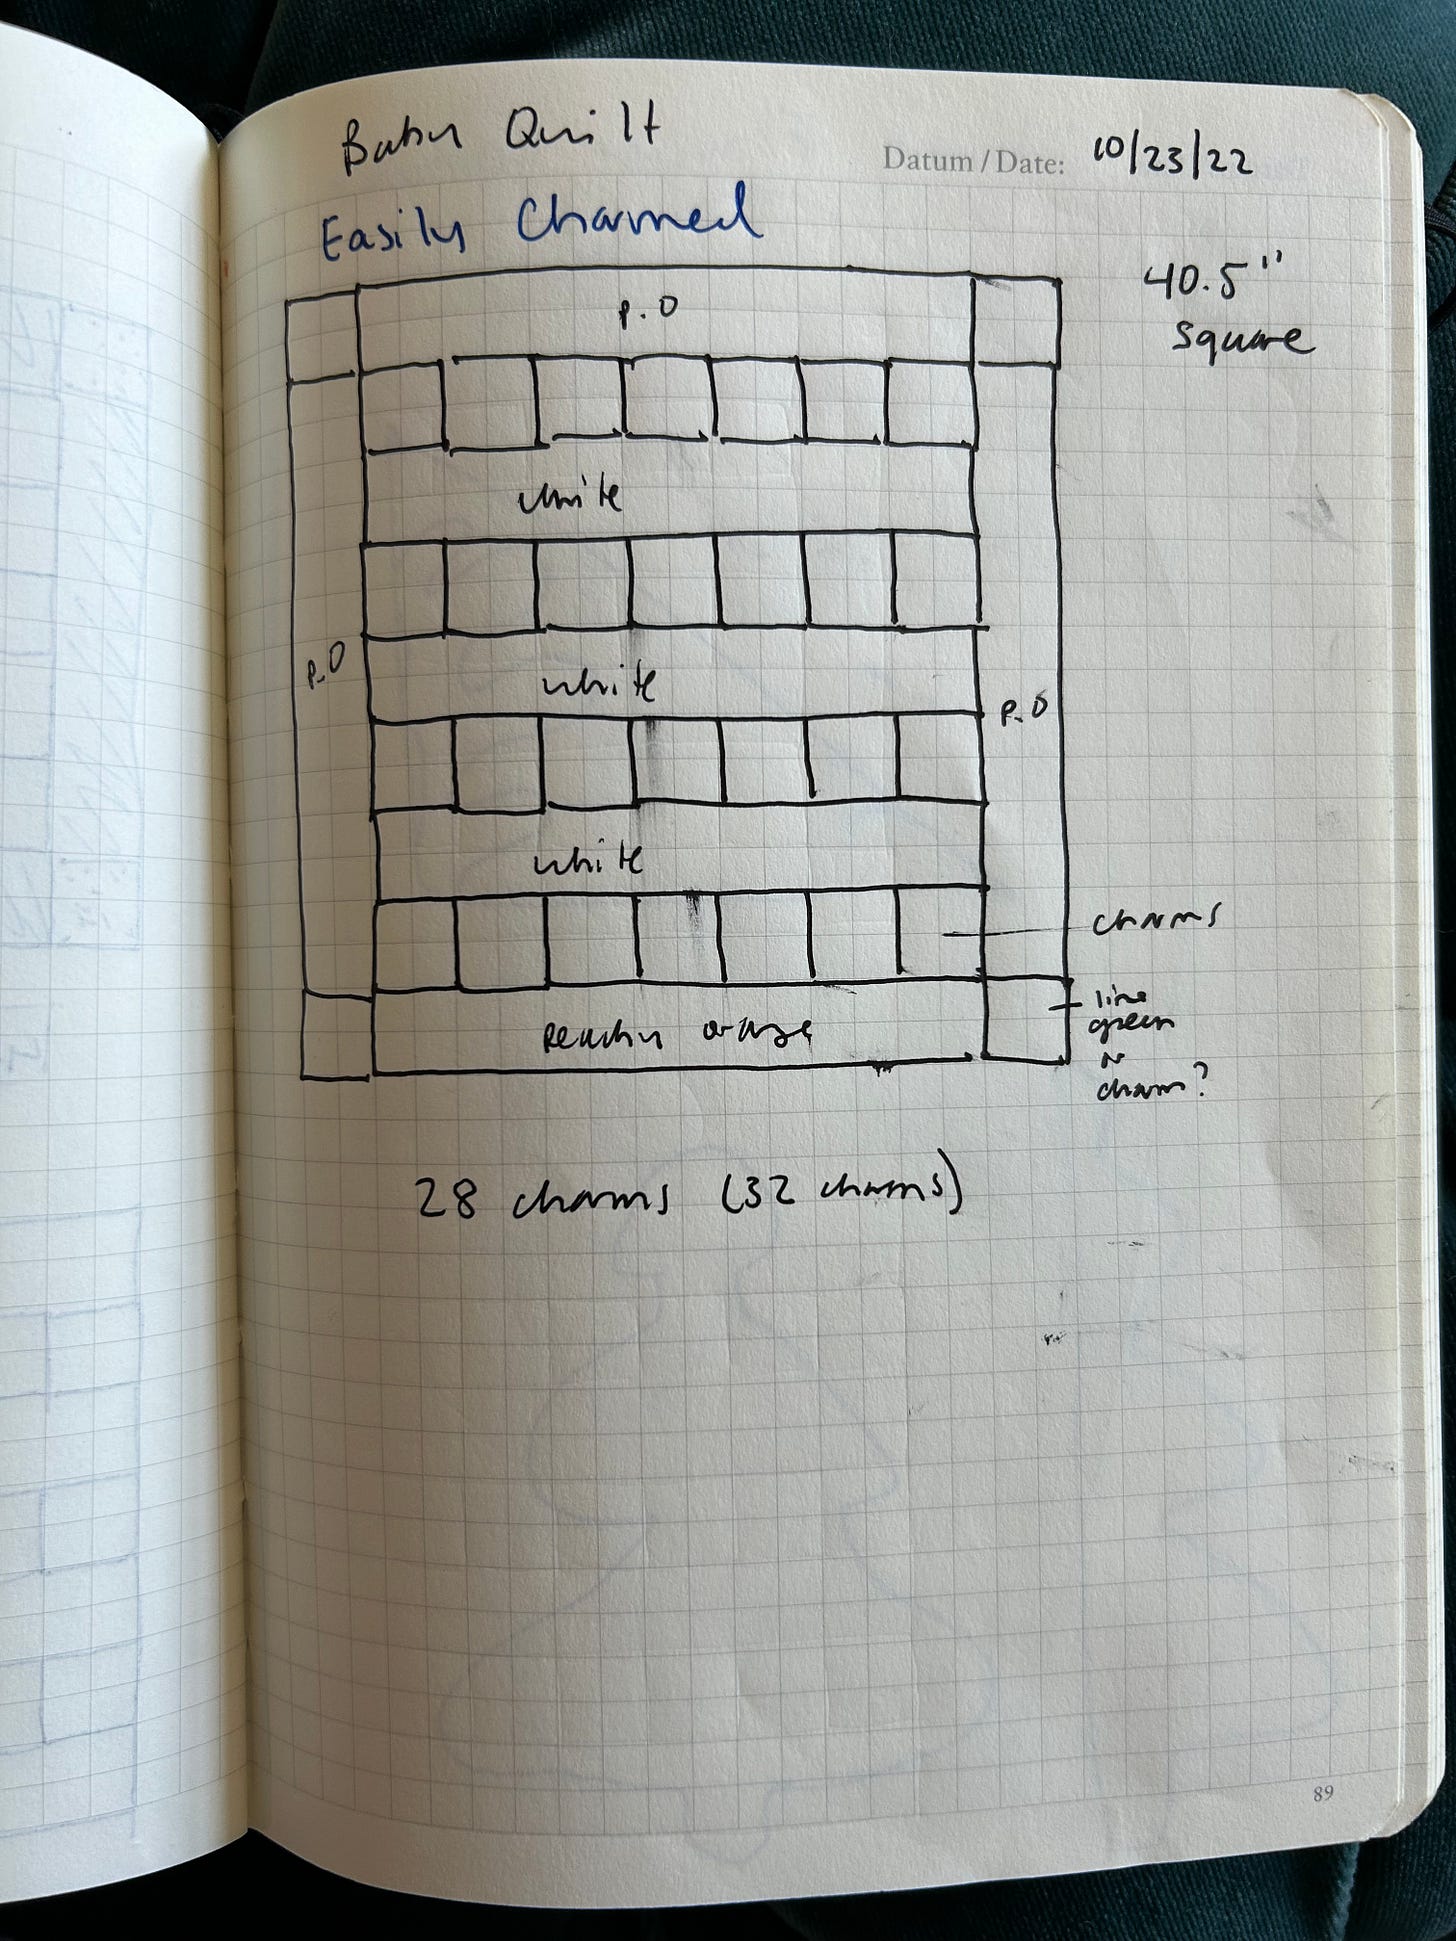 Baby Quilt
Datum / Date: 10/23/22
Easily Charmed
40.5"
square
P.O
white
white
P.O
P.O
white
charms
lime
green
or
charm?
Peachy orange
28 charms (32 charms)
89